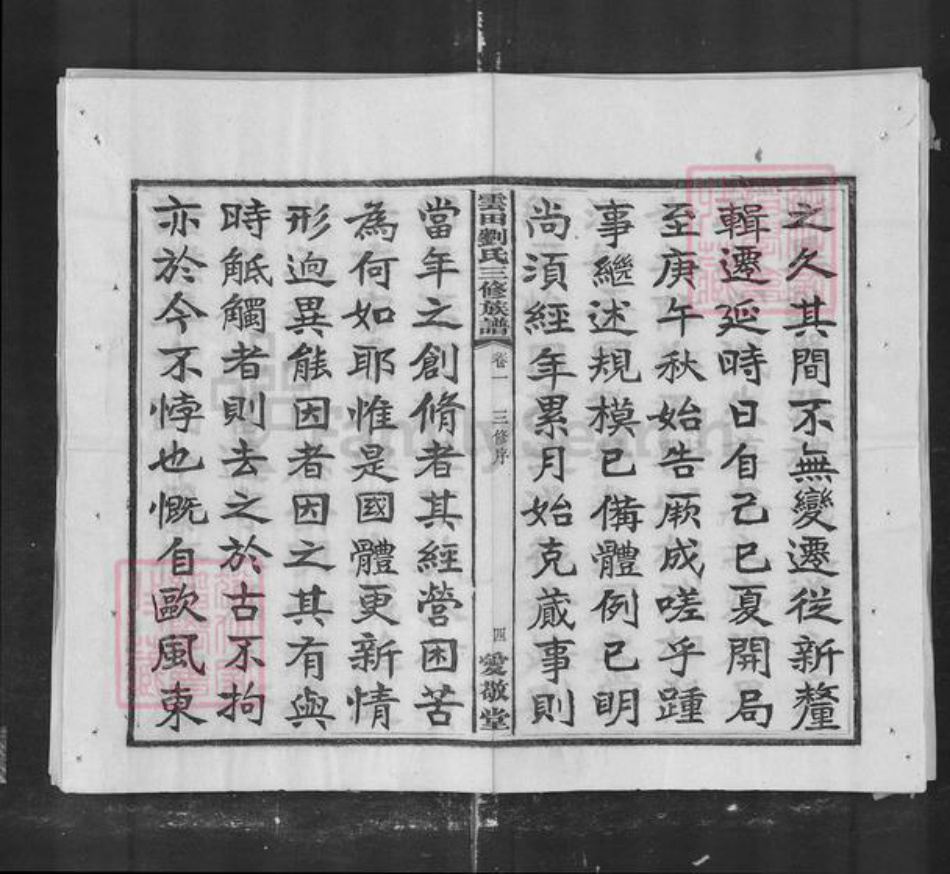 之久其間不無變遷從新釐
輯遷延時日自己巳夏開局
至庚午秋始告厥成嗟乎踵
事繼述規模已備體例已明
尚須經年累月始克蕆事則
雲田劉氏三修族譜
卷一 三修序
四
愛敬堂
當年之創脩者其經營困苦
為何如耶惟是國體更新情
形逈異能因者因之其有與
時觝觸者則去之於古不拘
亦於今不悖也慨自歐風東
FamilySearch